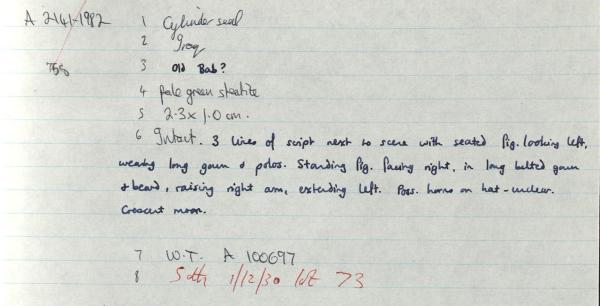 A 2141-1982 1 Cylinder seal
2 Iraq
758 3 Old Bab?
4 pale green steatite
5 2.3 x 1.0 cm.
6 Intact. 3 lines of script next to scene with seated fig. looking left,
wearing long gown & polos. Standing fig. facing right, in long belted gown
& beard, raising right arm, extending left. Poss. horns on hat - unclear.
Crescent moon.
7 W.T. A 100697
8 Soth 1/12/30 lot 73